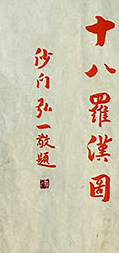 十八羅漢圖
沙门弘一敬題